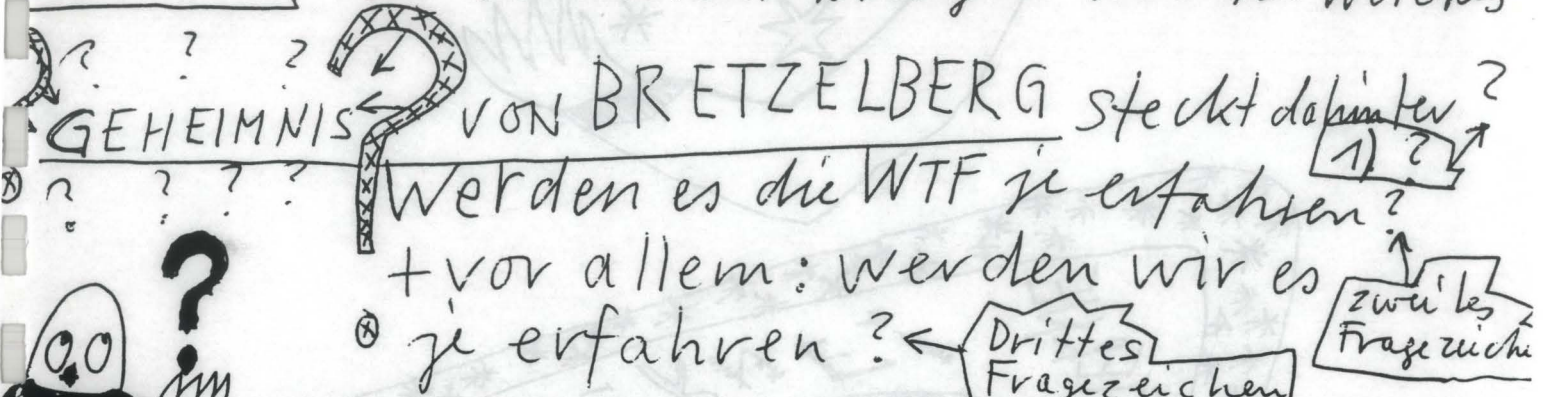 ? ? ?
GEHEIMNIS ? VON BRETZELBERG steckt dahinter ?
1) ?
? ? ? ?
Werden es die WTF je erfahren ?
+ vor allem : werden wir es
zweites
Fragezeiche
je erfahren ?
Drittes
Fragezeichen
?